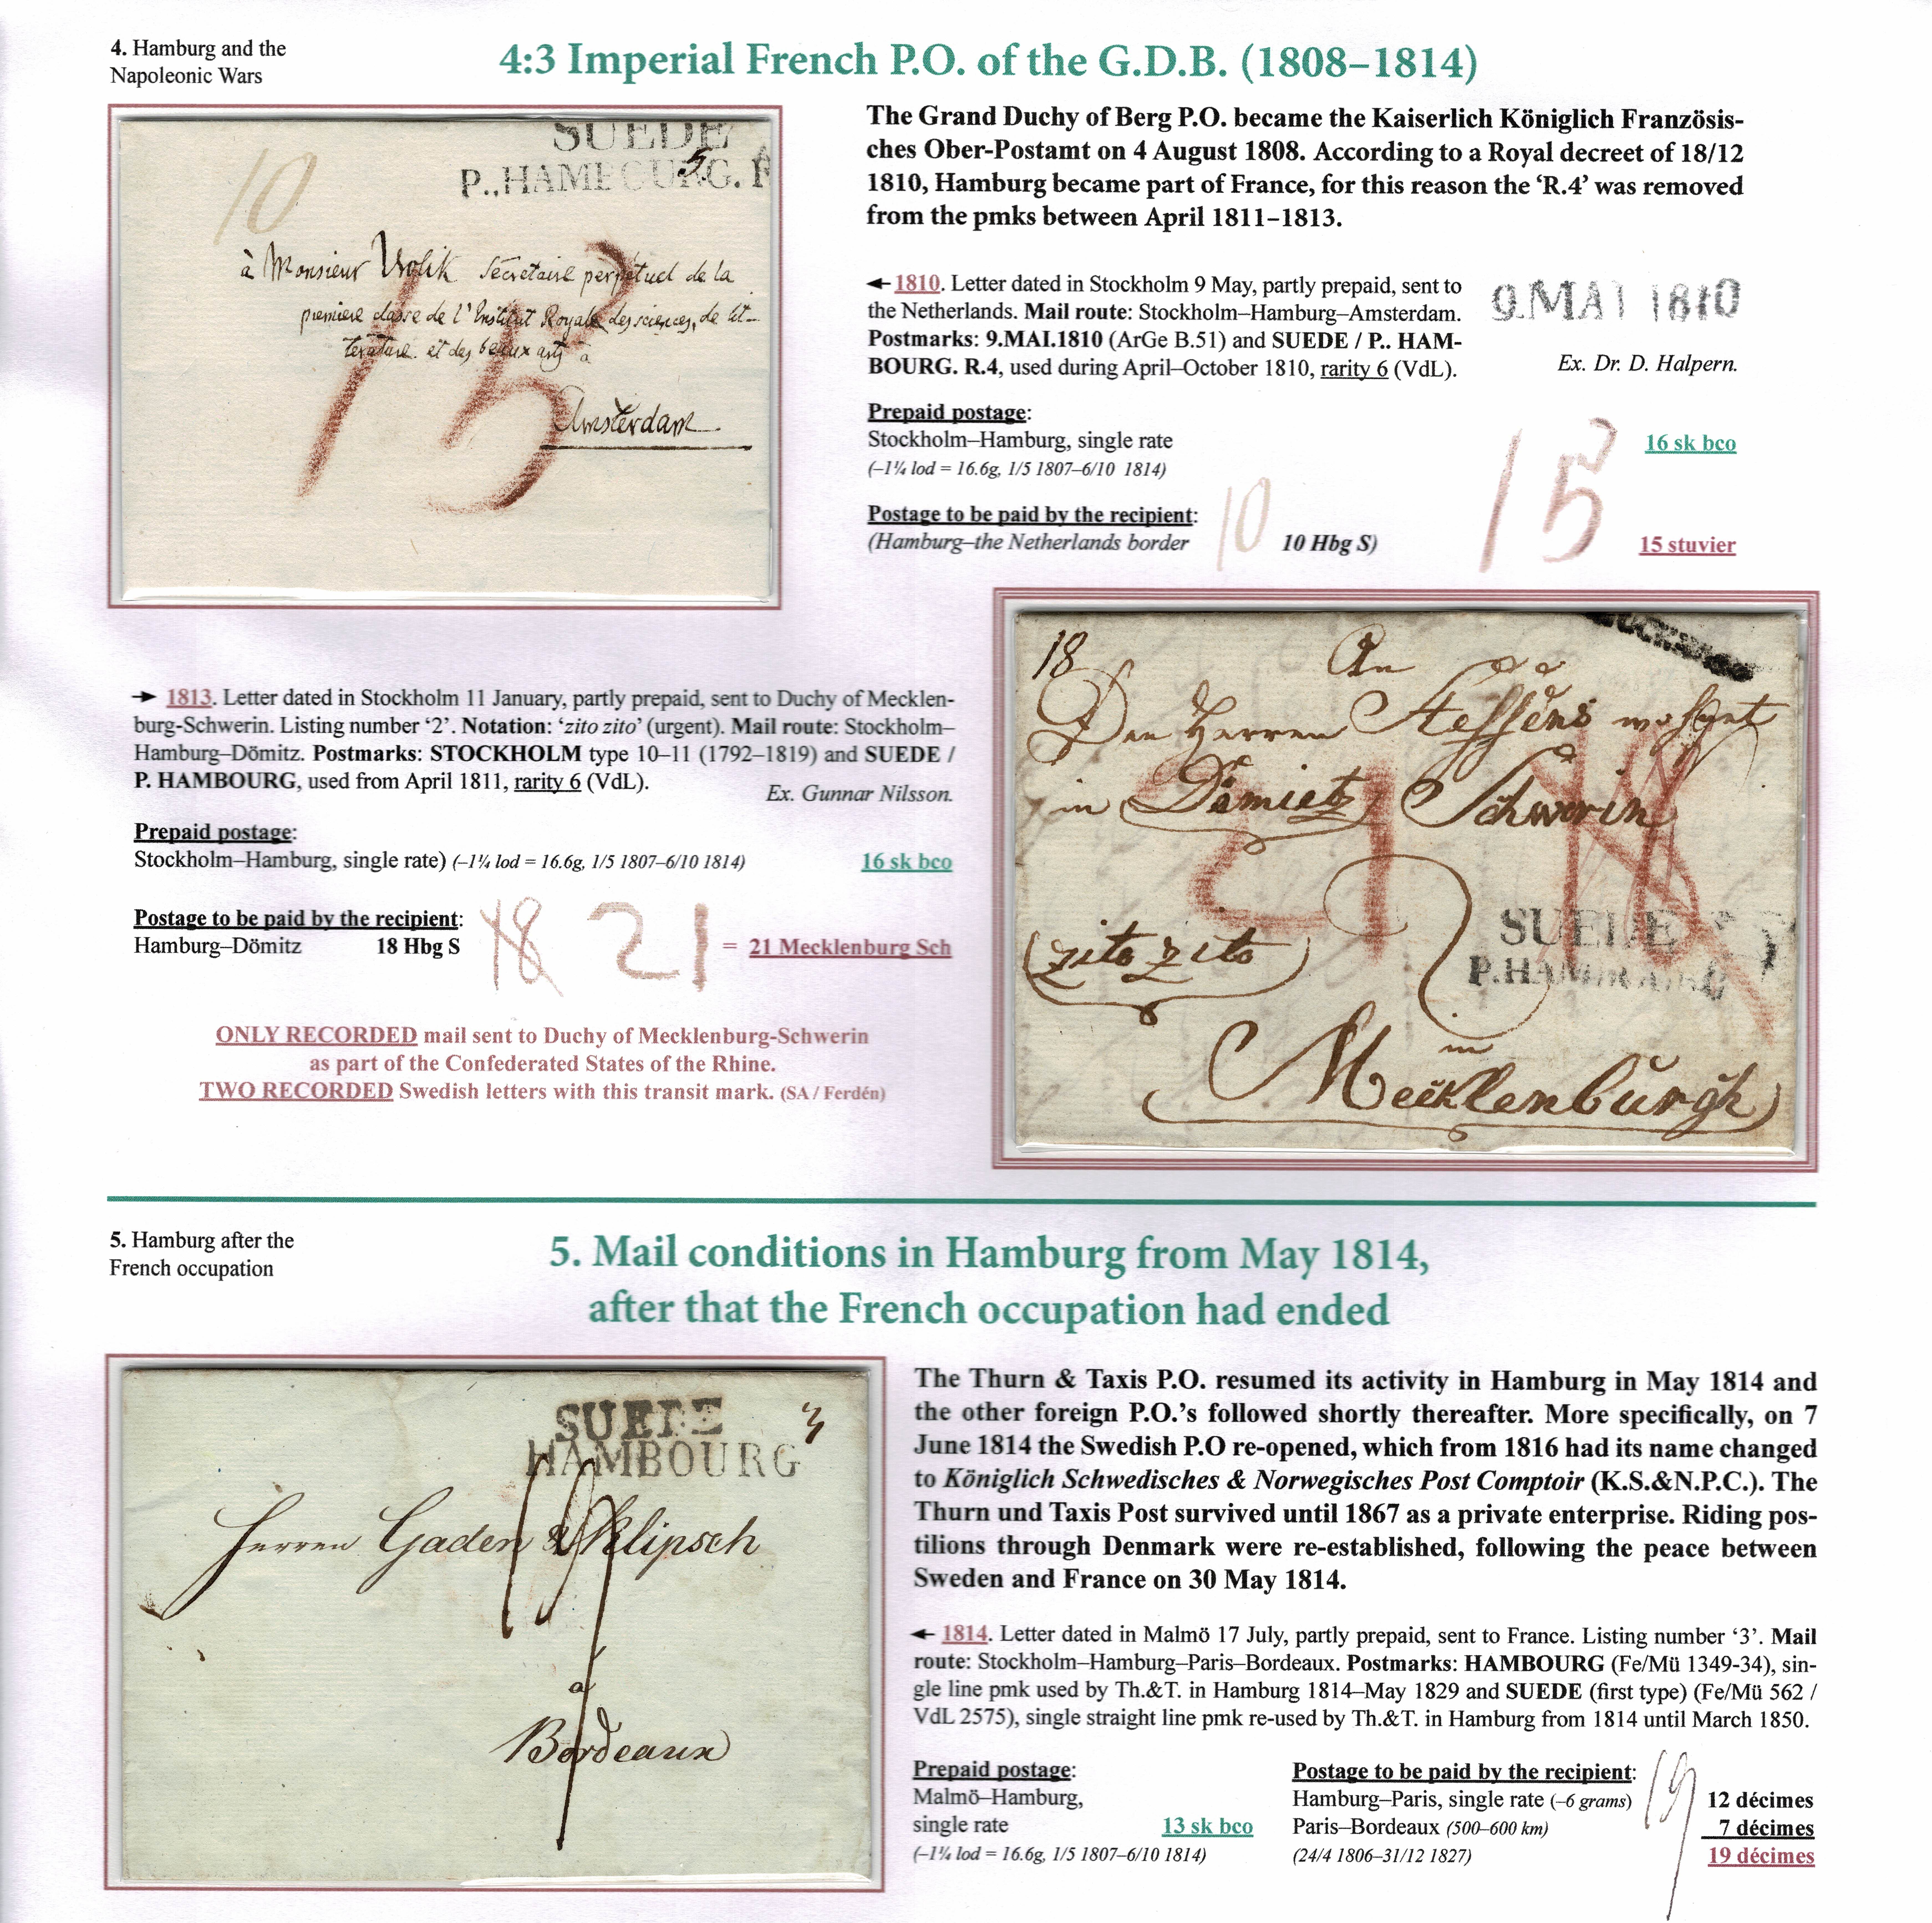 4. Hamburg and the
Napoleonic Wars
4:3 Imperial French P.O. of the G.D.B. (1808–1814)
SUEDE
5
P.,HAMBOURG. R
10
à Monsieur Vrolik Sécretaire perpétuel de la
premiere classe de l'Institut Royale des sciences, de lit-
terature. et des beaux arts à
15
Amsterdam
The Grand Duchy of Berg P.O. became the Kaiserlich Königlich Französis-
ches Ober-Postamt on 4 August 1808. According to a Royal decreet of 18/12
1810, Hamburg became part of France, for this reason the ‘R.4’ was removed
from the pmks between April 1811–1813.
← 1810. Letter dated in Stockholm 9 May, partly prepaid, sent to
the Netherlands. Mail route: Stockholm–Hamburg–Amsterdam.
Postmarks: 9.MAI.1810 (ArGe B.51) and SUEDE / P.. HAM-
BOURG. R.4, used during April–October 1810, rarity 6 (VdL).
9.MAI 1810
Ex. Dr. D. Halpern.
Prepaid postage:
Stockholm–Hamburg, single rate 16 sk bco
(–1¼ lod = 16.6g, 1/5 1807–6/10 1814)
Postage to be paid by the recipient:
(Hamburg–the Netherlands border 10 10 Hbg S) 15 15 stuvier
→ 1813. Letter dated in Stockholm 11 January, partly prepaid, sent to Duchy of Mecklen-
burg-Schwerin. Listing number ‘2’. Notation: ‘zito zito’ (urgent). Mail route: Stockholm–
Hamburg–Dömitz. Postmarks: STOCKHOLM type 10–11 (1792–1819) and SUEDE /
P. HAMBOURG, used from April 1811, rarity 6 (VdL).
Ex. Gunnar Nilsson.
Prepaid postage:
Stockholm–Hamburg, single rate) (–1¼ lod = 16.6g, 1/5 1807–6/10 1814) 16 sk bco
Postage to be paid by the recipient:
Hamburg–Dömitz 18 Hbg S 18 21 = 21 Mecklenburg Sch
ONLY RECORDED mail sent to Duchy of Mecklenburg-Schwerin
as part of the Confederated States of the Rhine.
TWO RECORDED Swedish letters with this transit mark. (SA / Ferdén)
18
An
Den Herren Steffens wohnt
in Dömietz Schwerin
21 18
SUEDE
P.HAMBOURG
zito zito
in
Mecklenburgh
5. Hamburg after the
French occupation
5. Mail conditions in Hamburg from May 1814,
after that the French occupation had ended
SUEDE
3
HAMBOURG
19
Herren Gaden & Klipsch
a
Bordeaux
The Thurn & Taxis P.O. resumed its activity in Hamburg in May 1814 and
the other foreign P.O.’s followed shortly thereafter. More specifically, on 7
June 1814 the Swedish P.O re-opened, which from 1816 had its name changed
to Königlich Schwedisches & Norwegisches Post Comptoir (K.S.&N.P.C.). The
Thurn und Taxis Post survived until 1867 as a private enterprise. Riding pos-
tilions through Denmark were re-established, following the peace between
Sweden and France on 30 May 1814.
← 1814. Letter dated in Malmö 17 July, partly prepaid, sent to France. Listing number ‘3’. Mail
route: Stockholm–Hamburg–Paris–Bordeaux. Postmarks: HAMBOURG (Fe/Mü 1349-34), sin-
gle line pmk used by Th.&T. in Hamburg 1814–May 1829 and SUEDE (first type) (Fe/Mü 562 /
VdL 2575), single straight line pmk re-used by Th.&T. in Hamburg from 1814 until March 1850.
Prepaid postage:
Malmö–Hamburg,
single rate 13 sk bco
(–1¼ lod = 16.6g, 1/5 1807–6/10 1814)
Postage to be paid by the recipient:
Hamburg–Paris, single rate (–6 grams) 19 12 décimes
Paris–Bordeaux (500–600 km) 7 décimes
(24/4 1806–31/12 1827) 19 décimes